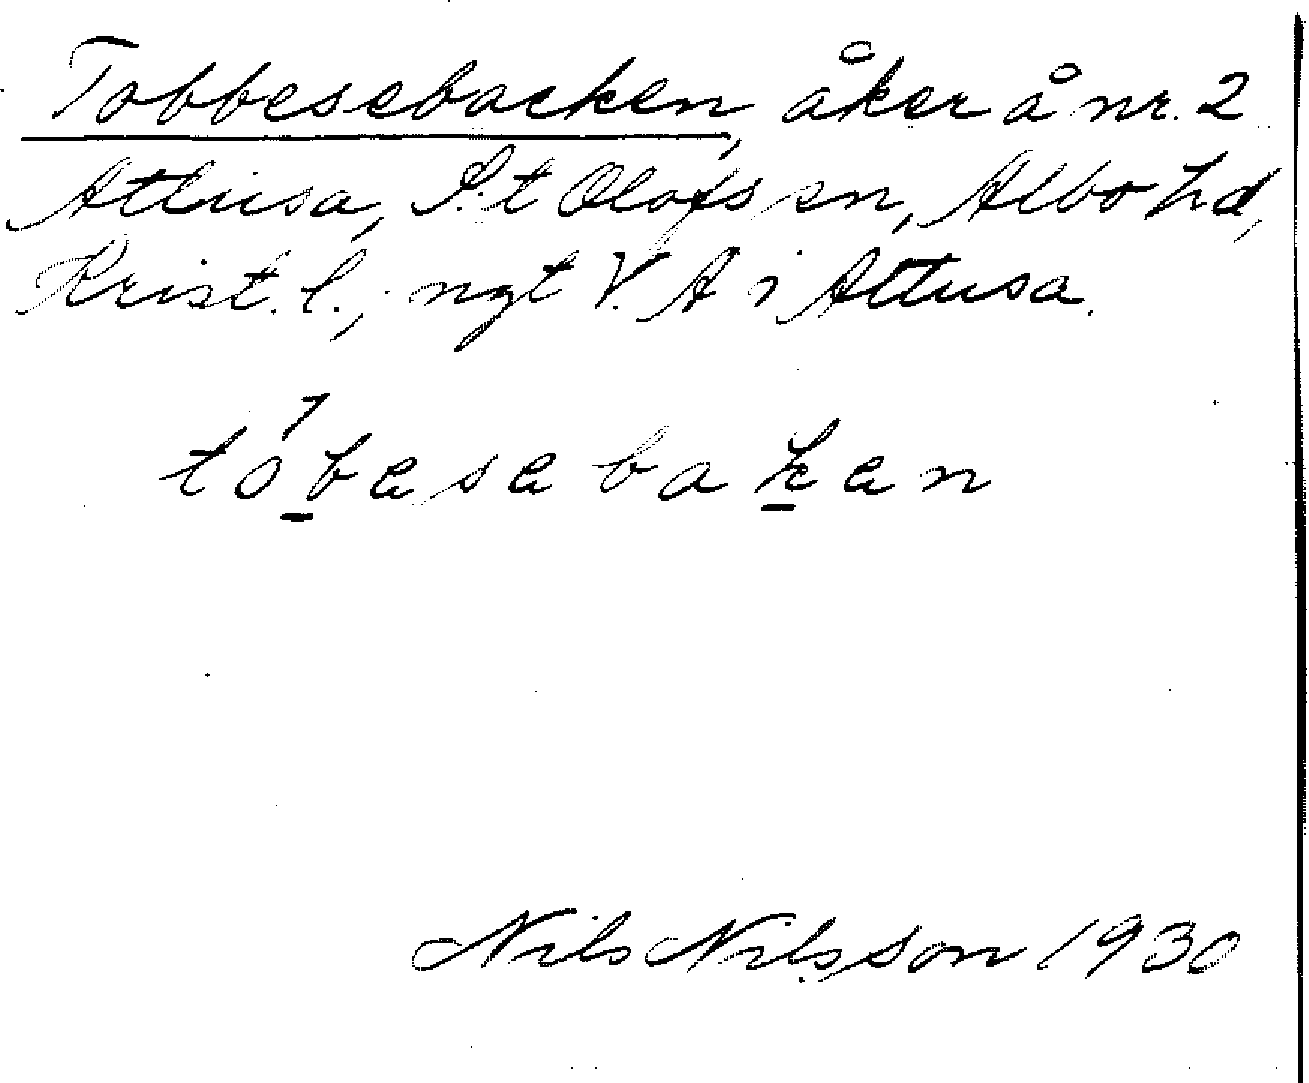 Tobbesebacken, åker å nr. 2
Attusa, S:t Olofs sn, Albo hd,
Krist. l.; ngt V. A i Attusa.
tóbesebaken
Nils Nilsson 1930